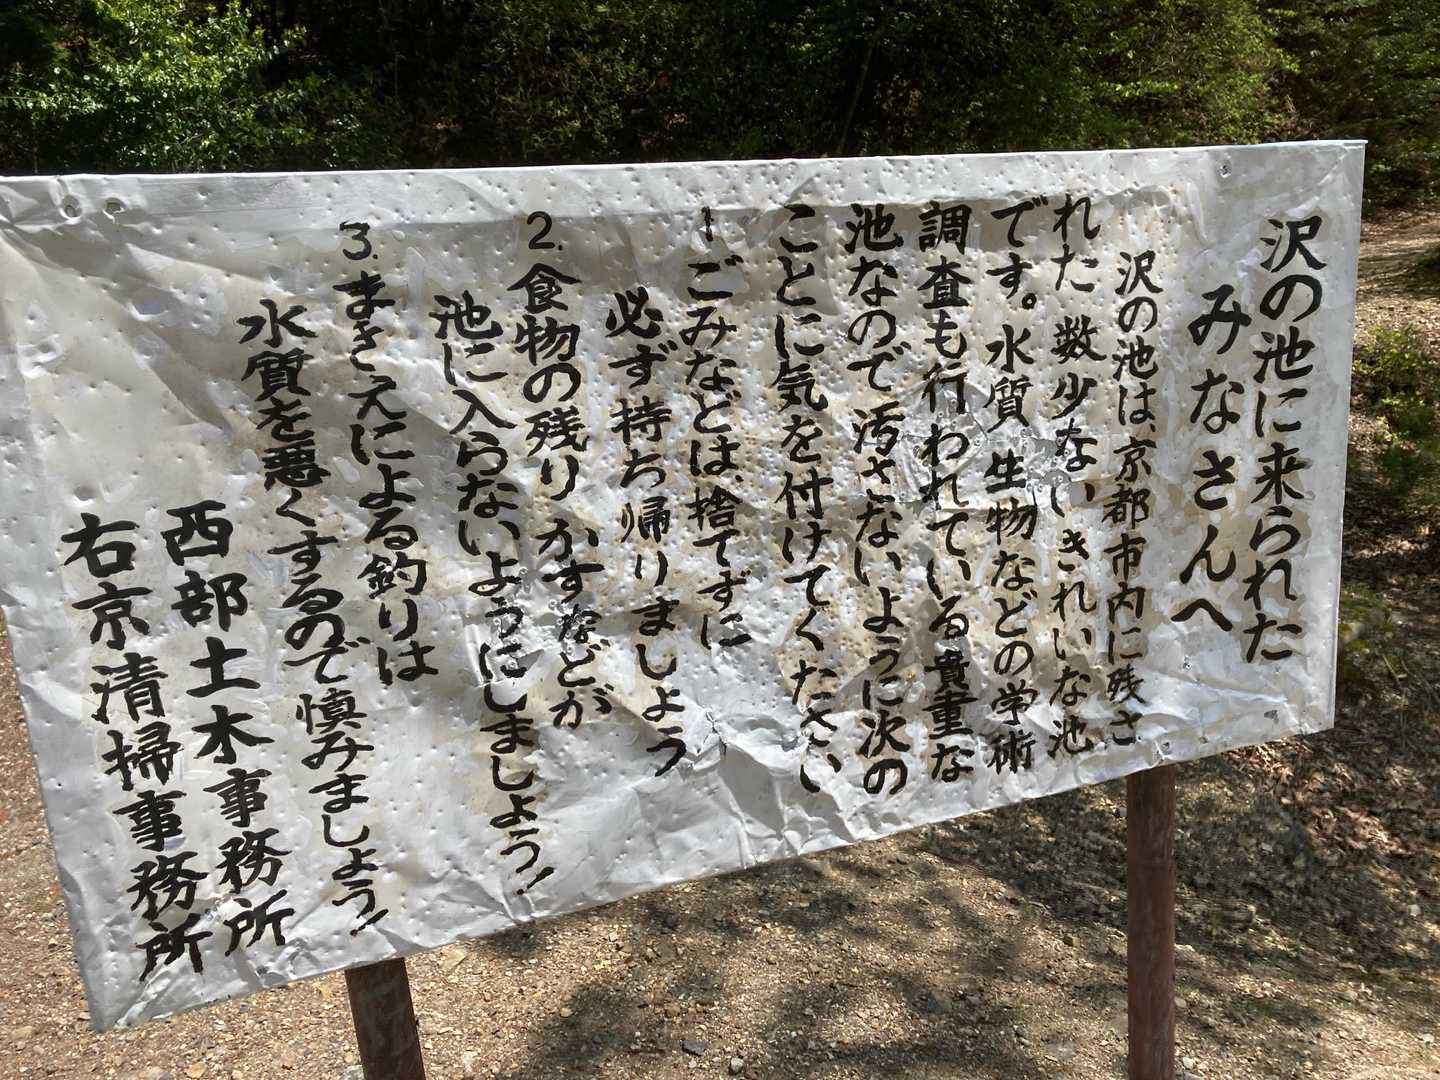 沢の池に来られた
みなさんへ
沢の池は、京都市内に残さ
れた数少ないきれいな池
です。水質生物などの学術
調査も行われている貴重な
池なので汚さないように次の
ことに気を付けてください
1ごみなどは、捨てずに
必ず持ち帰りましょう
2.食物の残りかすなどが
池に入らないようにしましょう!
3.まきえによる釣りは
水質を悪くするので慎みましょう!
西部土木事務所
右京清掃事務所